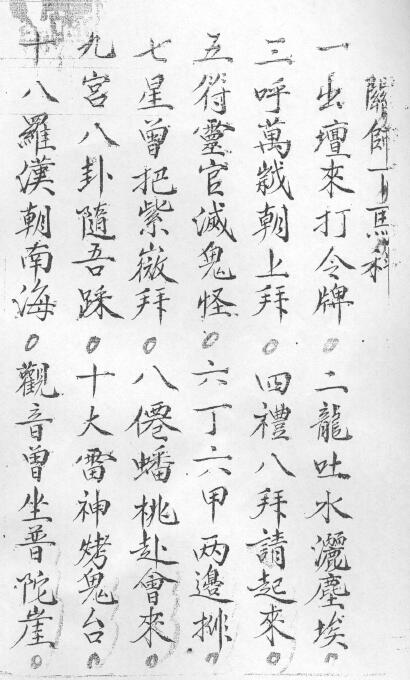 師下馬
一出壇來打令牌。二龍吐水灑塵埃。
三呼萬歲朝上拜。四禮八拜請起來。
五符靈官滅鬼怪。六丁六甲两邊排。
七星曾把紫微拜。八僊蟠桃赴會來。
九宮八卦隨吾踩。十大雷神烤鬼台。
十八羅漢朝南海。觀音曾坐普陀崖。